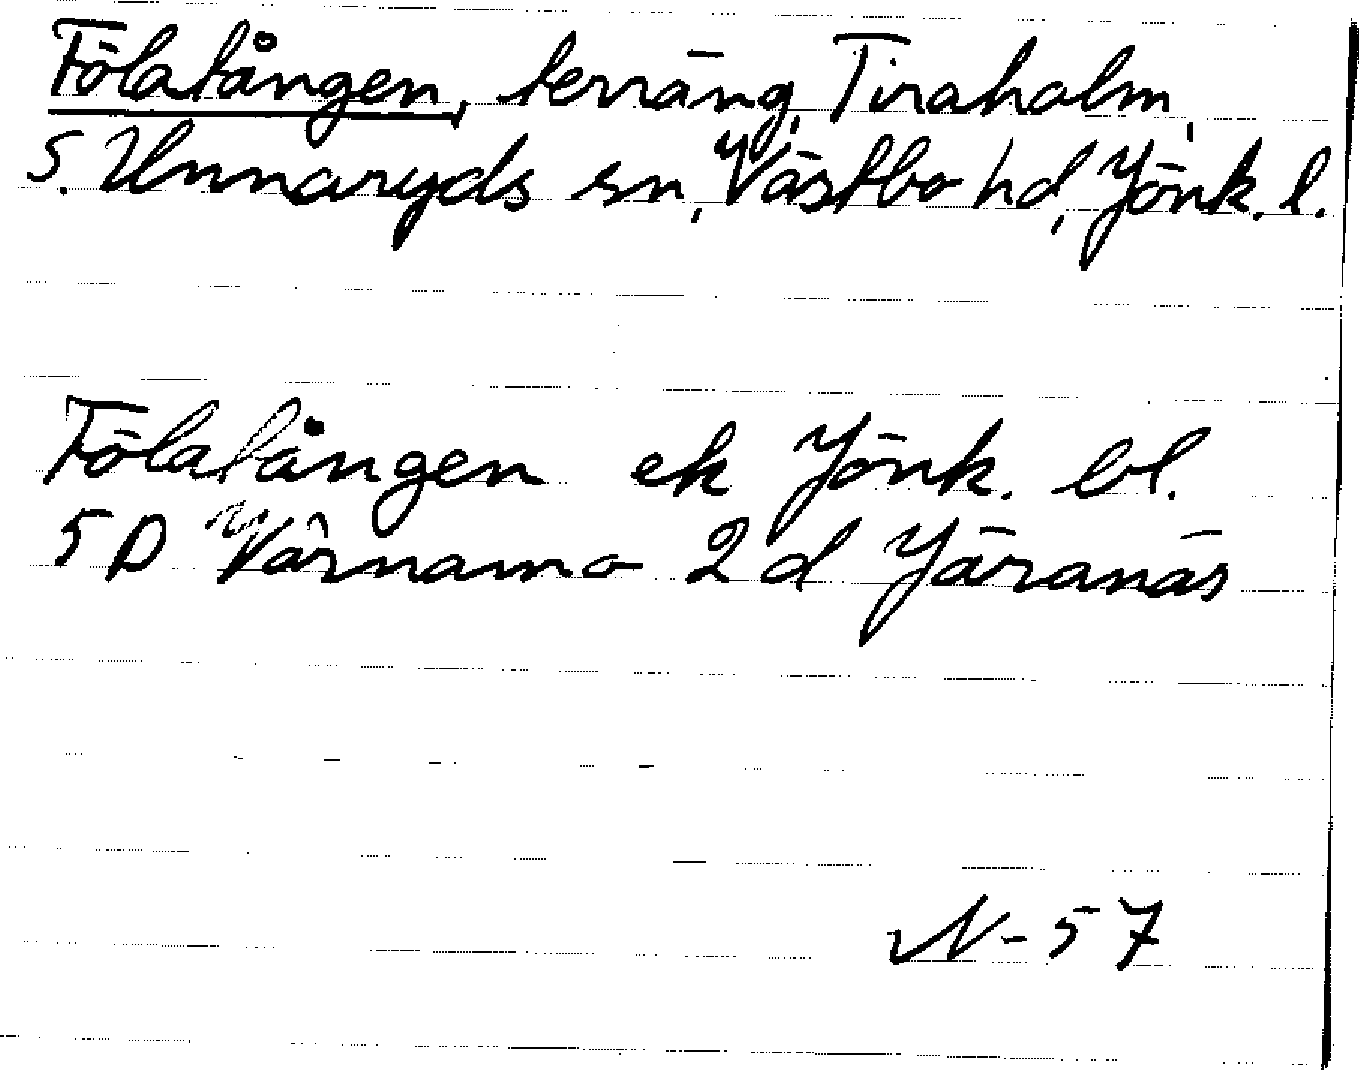 Fölatången, terräng, Tiraholm,
S. Unnaryds sn, Västbo hd, Jönk. l.
Fölatången ek Jönk. bl.
5D Värnamo 2d Järanäs
N-57